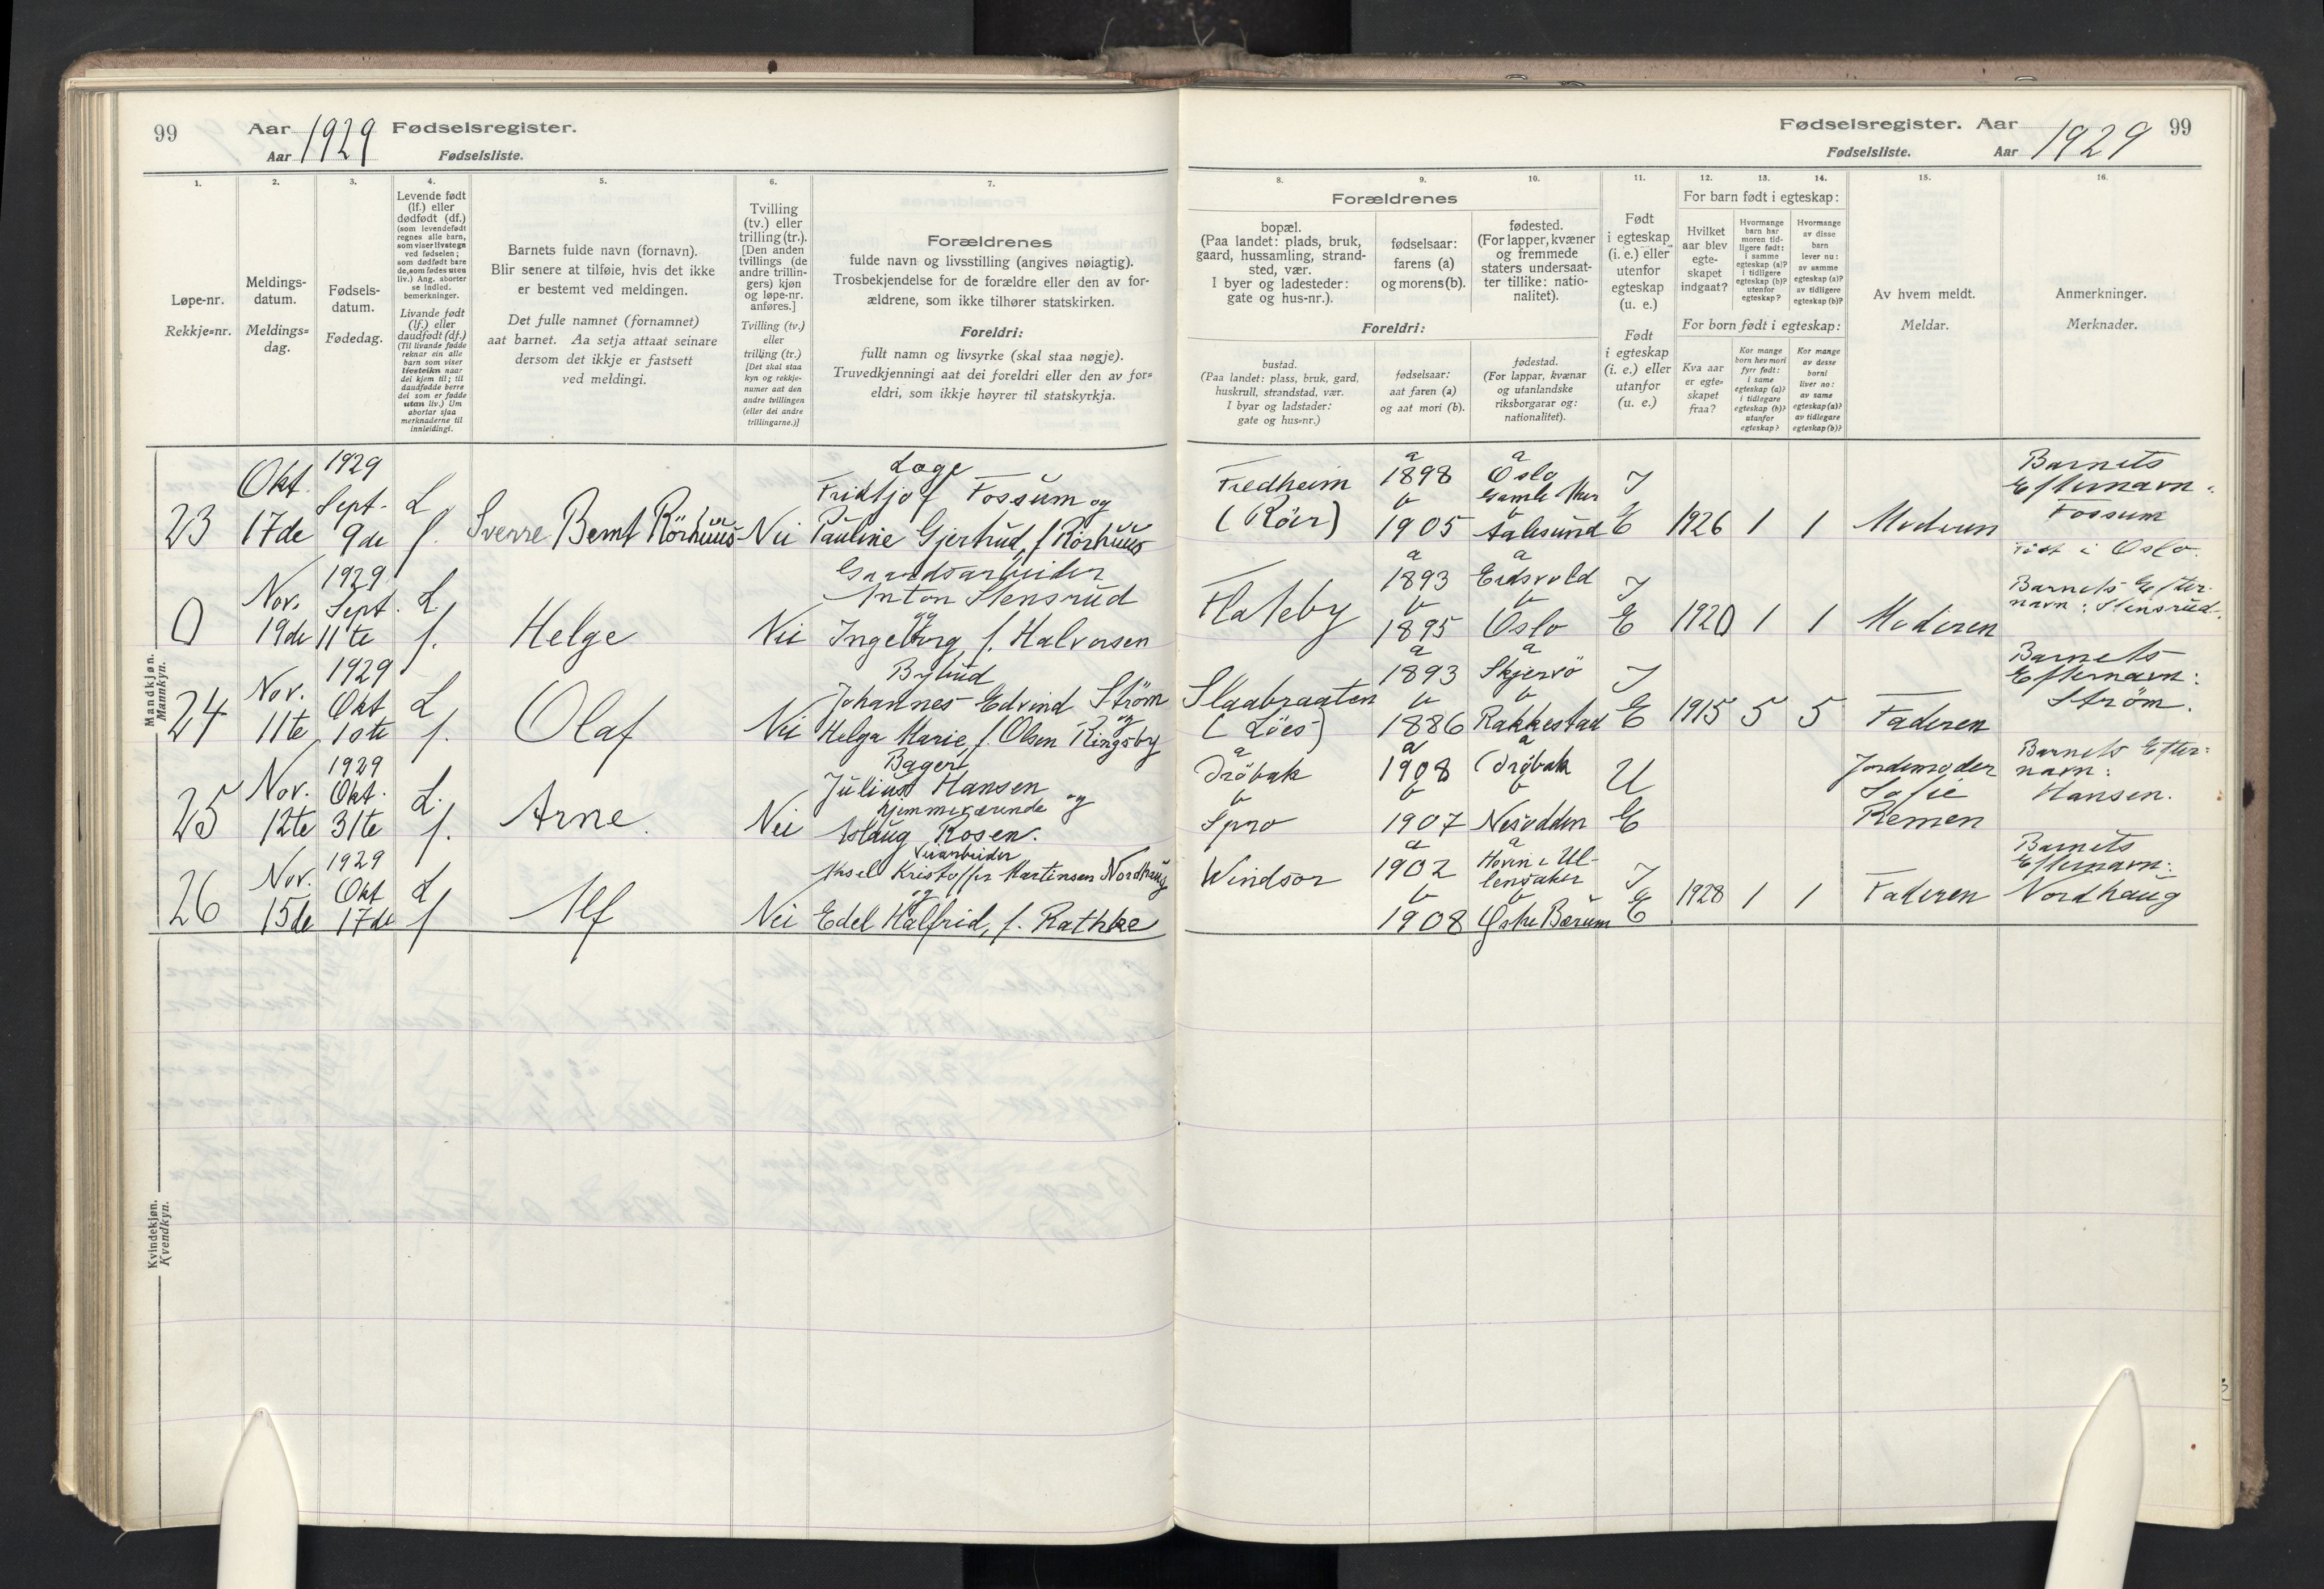 99
Aar 1929 Fødselsregister.
Aar
Fødselsliste.
1.
2.
3.
4.
5.
6.
7.
Løpe-nr.
Rekkje=nr.
Meldings-
datum.
Meldings=
dag.
Fødsels-
datum.
Fødedag.
Levende født
(lf.) eller
dødfødt (df.)
(som levendefødt
regnes alle barn,
som viser livstegn
ved fødselen;
som dødfødt bare
de, som fødes uten
liv.) Ang. aborter
se indled.
bemerkninger.
Livande født
(lf.) eller
daudfødt (df.)
(Til livande fødde
reknar ein alle
barn som viser
livsteikn naar
dei kjem til; til
daudfødde berre
dei som er fødde
utan liv.) Um
abortar sjaa
merknaderne til
innleidingi.
Barnets fulde navn (fornavn).
Blir senere at tilføie, hvis det ikke
er bestemt ved meldingen.
Det fulle namnet (fornamnet)
aat barnet. Aa setja attaat seinare
dersom det ikkje er fastsett
ved meldingi.
Tvilling
(tv.) eller
trilling (tr.).
[Den anden
tvillings (de
andre trillin-
gers) kjøn
og løpe-nr.
anføres.]
Tvilling (tv.)
eller
trilling (tr.)
[Det skal staa
kyn og rekkje-
numer aat den
andre tvillingen
(eller dei andre
trillingarne.)]
Forældrenes
fulde navn og livsstilling (angives nøiagtig).
Trosbekjendelse for de forældre eller den av for-
ældrene, som ikke tilhører statskirken.
Foreldri:
fullt namn og livsyrke (skal staa nøgje).
Truvedkjenningi aat dei foreldri eller den av for=
eldri, som ikkje høyrer til statskyrkja.
Mandkjøn.
Mannkyn.
23 Okt. 17de 1929 Sept. 9de L f. Sverre Bernt Rörhuus Nei
Læge
Fridtjof Fossum og
Pauline Gjertrud, f. Rörhuus
0 Nov. 19de 1929 Sept. 11te L. f. Helge Nei
Gaardsarbeider
Anton Stensrud
og
Ingeborg, f. Halvorsen
24 Nov. 11te 1929 Okt 1ste L f. Olaf Nei
Bybud
Johannes Edvind Ström
og
Helga Marie, f. Olsen Ringsby
25 Nov. 12te 1929 Okt. 31te L. f. Arne. Nei
Bager
Julius Hansen
hjemmeværende og
Aslaug Rosen.
26 Nov. 15de 1929 Okt 17de L f Alf Nei
Veiarbeider
Aksel Kristoffer Martinsen Nordhaug
og
Edel Halfrid, f. Rathke
Kvindekjøn.
Kvendkyn.
Fødselsregister. Aar 1929 99
Fødselsliste.
Aar
8.
9.
10.
11.
12.
13.
14.
15.
16.
Forældrenes
bopæl.
(Paa landet: plads, bruk,
gaard, hussamling, strand-
sted, vær.
I byer og ladesteder:
gate og hus-nr.).
fødselsaar:
farens (a)
og morens (b).
fødested.
(For lapper, kvæner
og fremmede
staters undersaat-
ter tillike: natio-
nalitet).
Foreldri:
bustad.
(Paa landet: plass, bruk, gard,
huskrull, strandstad, vær.
I byar og ladstader:
gate og hus=nr.)
fødselsaar:
aat faren (a)
og aat mori (b).
fødestad.
(For lappar, kvænar
og utanlandske
riksborgarar og:
nationalitet).
Født
i egteskap
(i. e.) eller
utenfor
egteskap
(u. e.)
Født
i egteskap
(i. e.) eller
utanfor
(u. e.)
For barn født i egteskap:
Hvilket
aar blev
egte-
skapet
indgaat?
Hvormange
barn har
moren tid-
ligere født:
i samme
egteskap (a)?
i tidligere
egteskap (b)?
utenfor
egteskap?
Hvormange
av disse
barn
lever nu:
av samme
egteskap (a)?
av tidligere
egteskap (b)?
For born født i egteskap:
Kva aar
er egte=
skapet
fraa?
Kor mange
born hev mori
fyrr født:
i same
egteskap (a)?
i tidlegare
egteskap (b)?
utanfor
egteskap?
Kor mange
av desse
borni
liver no:
av same
egteskap (a)?
av tidlegare
egteskap (b)?
Av hvem meldt.
Meldar.
Anmerkninger.
Merknader.
Fredheim
(Röer)
a 1898
b 1905
a Oslo
Gamle Aker
b Aalesund
I E 1926 1 1 Moderen
Barnets
Efternavn:
Fossum
Födt i Oslo.
Flateby
a 1893
b 1895
a Eidsvold
b Oslo
I E 1920 1 1 Moderen
Barnets Efter-
navn: Stensrud.
Slaabraaten
a 1893
b 1886
a Skjervö
b Rakkestad
I E 1915 5 5 Faderen
Barnets
Efternavn:
Strøm.
a Dröbak
b Spro
a 1908
b 1907
a Dröbak
b Nesodden
U E
Jordemoder
Sofie
Remen
Barnets Efter=
navn:
Hansen.
Windsor
a 1902
b 1908
a Hovin i Ul-
lensaker
b Østre Bærum
I E 1928 1 1 Faderen
Barnets
Efternavn:
Nordhaug